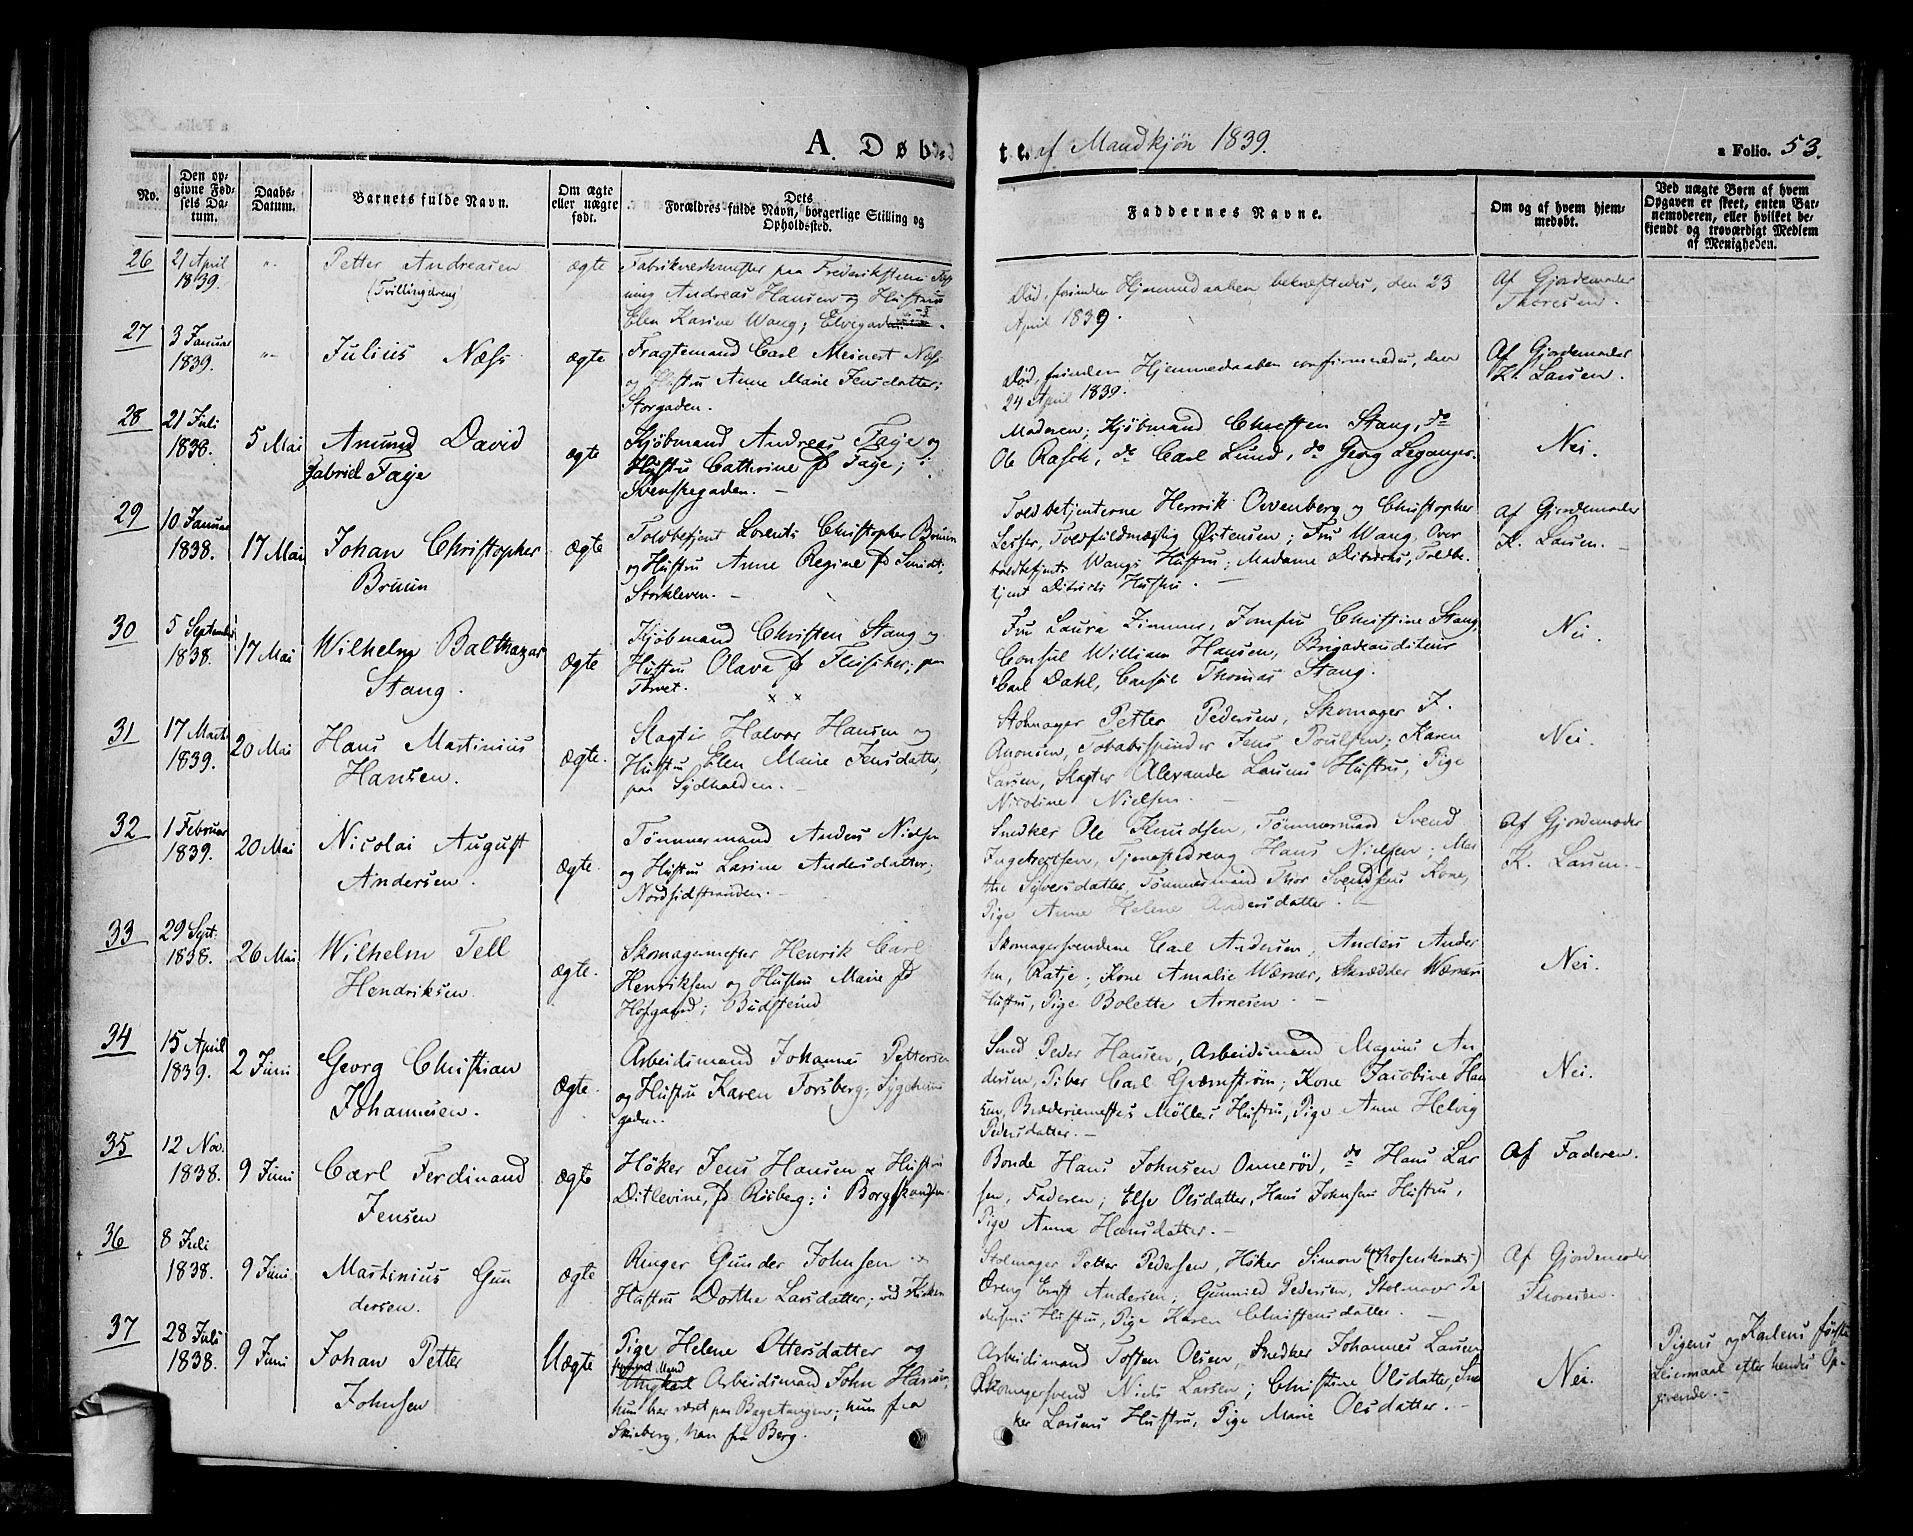 A. Døbte af Mandkjøn 1839.
a Folio. 53.
No.
Den opgivne Fødsels Datum.
Daabs-Datum.
Barnets fulde Navn.
Om ægte eller uægte født.
Dets Forældres fulde Navn, borgerlige Stilling og Opholdssted.
Faddernes Navne.
Om og af hvem hjemmedøbt.
Ved uægte Børn af hvem Opgaven er skeet, enten Barnemoderen, eller hvilket bekjendt og troværdigt Medlem af Menigheden.
26
21 April
1839.
"
Petter Andreasen
(Tvillingdreng)
ægte
Fabrikværkmester paa Frederikssteens Fæst
ning Andreas Hansen og Hustru
Elen Karine Wang; Elvegaden.
Død, forinden Hjemmedaaben bekræftedes, den 23
April 1839.
Af Gjordemoder
Thoresen.
27
3 Januar
1839.
"
Julius Næss
ægte
Fragtemand Carl Meinert Næss
og Hustru Anne Marie Jensdatter;
Storgaden.
Død, forinden Hjemmedaaben confirmeredes, den
24 April 1839.
Af Gjordemoder
K. Larsen.
28
21 Juli
1838.
5 Mai
Amund David
Gabriel Faye
ægte
Kjøbmand Andreas Faye og
Hustru Cathrine fd Faye; i
Svenskegaden. -
Moderen; Kjøbmand Christen Stang, do
Ole Rasch, do Carl Lund, do Georg Leganger.
Nei.
29
10 Januar
1838.
17 Mai
Johan Christopher
Bruun
ægte
Toldbetjent Lorents Christopher Bruun
og Hustru Anne Regine fd Smidt;
Storkleven. -
Toldbetjenterne Henrik Ovenberg og Christopher
Lesser, Toldfuldmægtig Østensen; Fru Wang, Over
toldbetjent Wangs Hustru; Madame Ditrichs, Toldbe-
tjent Ditrichs Hustru. -
af Gjordemoder
K. Larsen. -
30
5 September
1838.
17 Mai
Wilhelm Balthazar
Stang.
ægte
Kjøbmand Christen Stang og
Hustru Olava fd Fleischer; paa
Torvet.
Fru Laura Zimmer, Jomfru Christine Stang,
Consul William Hansen, Brigadeauditeur
Carl Dahl, Consul Thomas Stang.
Nei.
31
17 Marts
1839.
20 Mai
Hans Martinius
Hansen.
ægte.
Slagter Halvor Hansen og
Hustru Elen Marie Jensdatter,
paa Sydhalden. -
Stolmager Petter Pedersen, Skomager J.
Aronsen, Tobaksspinder Jens Poulsen; Karen
Larsen, Slagter Alexander Larsens Hustru, Pige
Nicoline Nielsen. -
Nei.
32
1 Februar
1839.
20 Mai
Nicolai August
Andersen.
ægte.
Tømmermand Anders Nielsen
og Hustru Larine Andersdatter;
Nordsidstranden. -
Snedker Ole Knudsen, Tømmermand Svend
Ingebretsen, Tjenestedreng Hans Nielsen; Mar
the Syversdatter, Tømmermand Thor Svendsens Kone,
Pige Anne Helene Andersdatter. -
Af Gjordemoder
K. Larsen. -
33
29 Sept.
1838.
26 Mai
Wilhelm Tell
Hendriksen
ægte.
Skomagermester Henrik Carl
Henriksen og Hustru Marie fd
Hofgaard;
Skomagersvendene Carl Andersen, Anders Ander
sen, Ratje; Kone Amalie Wærner, Skrædder Wærners
Hustru, Pige Bolette Arnesen. -
Nei.
34
15 April
1839.
2 Juni
Georg Christian
Johannesen.
ægte.
Arbeidsmand Johannes Pettersen
og Hustru Karen Forsberg; Sygehuus
gaden.
Smed Peder Hansen, Arbeidsmand Magnus An
dersen, Carl Grænstrøm; Kone Jacobine Han
sen, Møllers Hustru, Pige Anne Helvig
Pedersdatter. -
Nei.
35
12 Nov.
1838.
9 Juni
Carl Ferdinand
Jensen
ægte
Høker Jens Hansen & Hustru
Ditlevine, fd Risberg; i Borgskandsen.
Bonde Hans Johnsen Onnerød, do Hans Lar
sen, Faderen; Else Olsdatter, Hans Johnsens Hustru,
Pige Anna Hansdatter. -
Af Faderen.
36
8 Juli
1838.
9 Juni
Martinius Gun
dersen.
ægte
Ringer Gunder Johnsen
Hustru Dorthe Larsdatter; ved Kirken
Stolmager Petter Pedersen, Høker Simon (Rosenkrants)
Dreng Andersen; Gunnild Pedersen, Stolmager Pe
dersens Hustru, Pige Karen Christensdatter.
Af Gjordemoder
Thoresen.
37
28 Juli
1838.
9 Juni
Johan Petter
Johnsen
Uægte
Pige Helene Ottersdatter og
Ungkarl Arbeidsmand John Hansen,
hun har været paa Bagetangen; hun fra
Skieberg, han fra Berg.
Arbeidsmand Tosten Olsen, Snedker Johannes Larsen
Skomagersvend Niels Larsen; Christine Olsdatter, Sned
ker Larsens Hustru, Pige Marie Olsdatter. -
Nei.
Pigens og Karlens første
Leiermaal efter hendes Op-
givende. -